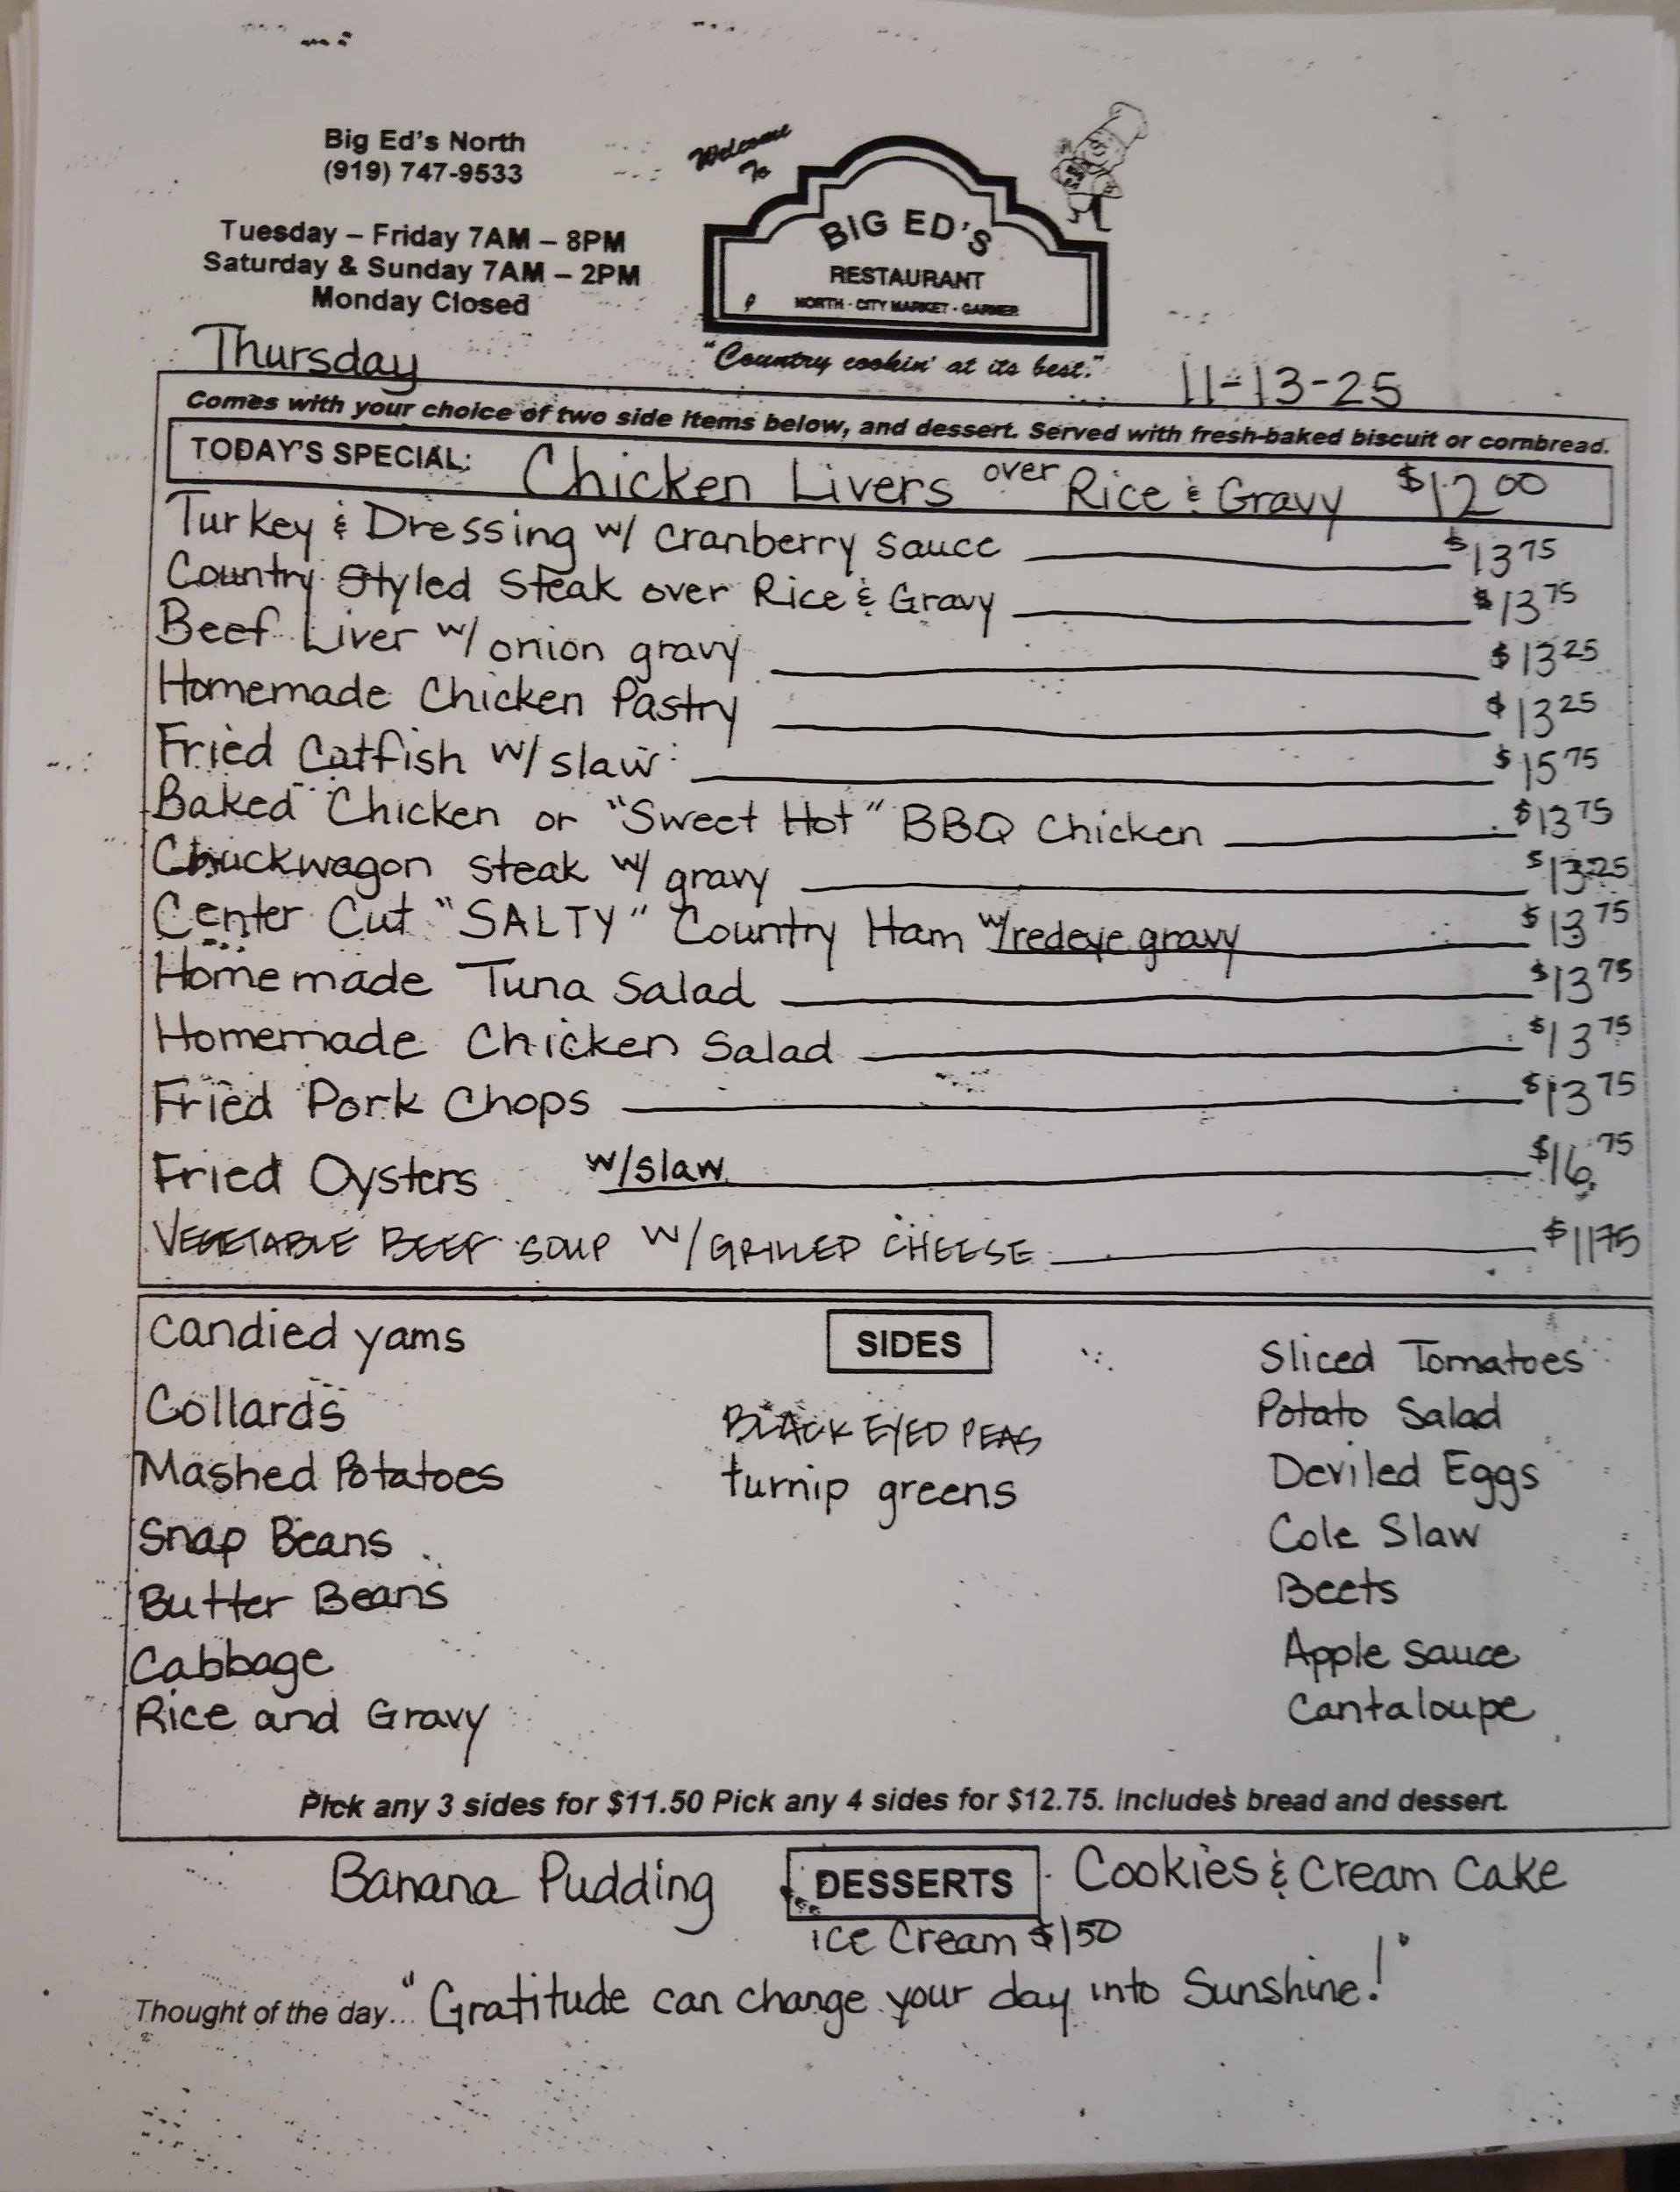 Big Ed's North
(919) 747-9533
Tuesday – Friday 7AM – 8PM
Saturday & Sunday 7AM – 2PM
Monday Closed
Welcome
To
BIG ED'S
RESTAURANT
NORTH - CITY MARKET - GARNER
"Country cookin' at its best."
Thursday
11-13-25
Comes with your choice of two side items below, and dessert. Served with fresh-baked biscuit or cornbread.
TODAY'S SPECIAL: Chicken Livers over Rice & Gravy $12.00
Turkey & Dressing w/ cranberry sauce $13 75
Country Styled Steak over Rice & Gravy $13 75
Beef Liver w/ onion gravy $13 25
Homemade Chicken Pastry $13 25
Fried Catfish w/ slaw $15 75
Baked Chicken or "Sweet Hot" BBQ Chicken $13 75
Chuckwagon steak w/ gravy $13 25
Center Cut "SALTY" Country Ham w/redeye gravy $13 75
Homemade Tuna Salad $13 75
Homemade Chicken Salad $13 75
Fried Pork Chops $13 75
Fried Oysters w/slaw $16 75
VEGETABLE BEEF SOUP W/GRILLED CHEESE $11 75
SIDES
Candied yams
Collards
Mashed Potatoes
Snap Beans
Butter Beans
Cabbage
Rice and Gravy
BLACK EYED PEAS
turnip greens
Sliced Tomatoes
Potato Salad
Deviled Eggs
Cole Slaw
Beets
Apple sauce
Cantaloupe
Pick any 3 sides for $11.50 Pick any 4 sides for $12.75. Includes bread and dessert.
Banana Pudding DESSERTS Cookies & Cream Cake
ice Cream $1 50
Thought of the day... "Gratitude can change your day into Sunshine!"